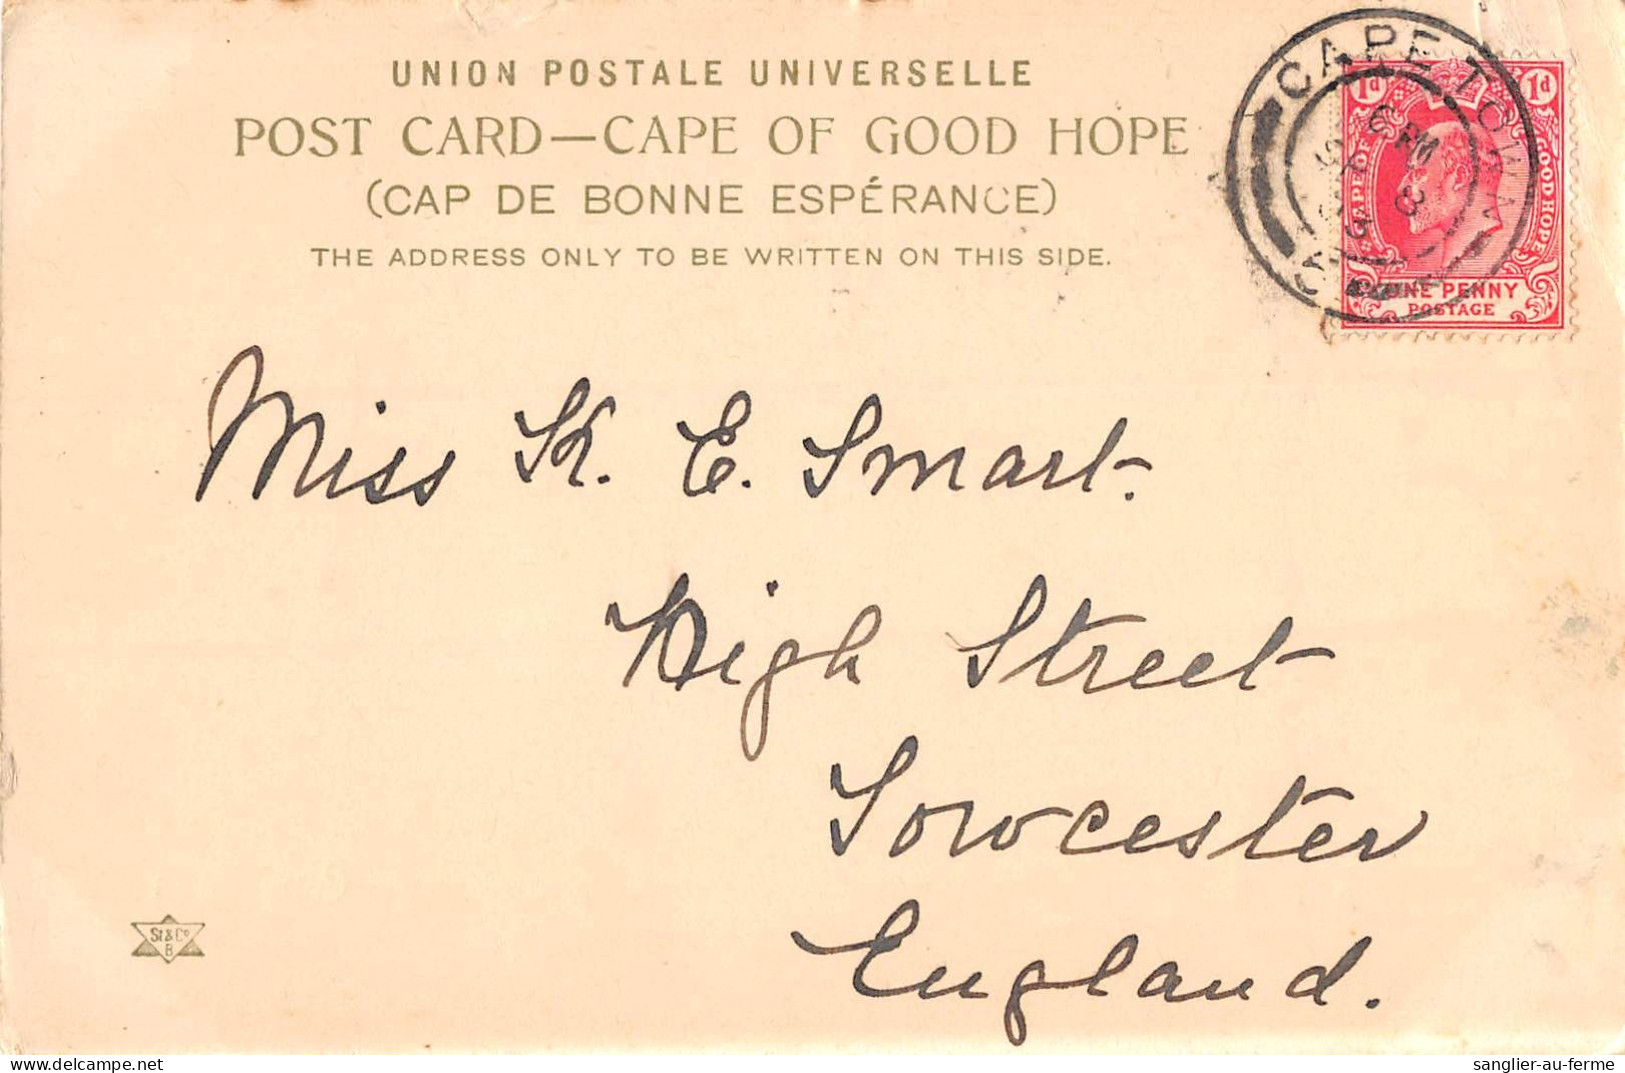 UNION POSTALE UNIVERSELLE
POST CARD—CAPE OF GOOD HOPE
(CAP DE BONNE ESPÉRANCE)
THE ADDRESS ONLY TO BE WRITTEN ON THIS SIDE.
CAPE TOWN
6 PM
SE 8
03
1d 1d
CAPE OF GOOD HOPE
ONE PENNY
POSTAGE
Miss K. E. Smart.
High Street
Towcester
England.
St & Co
B
sanglier-au-ferme